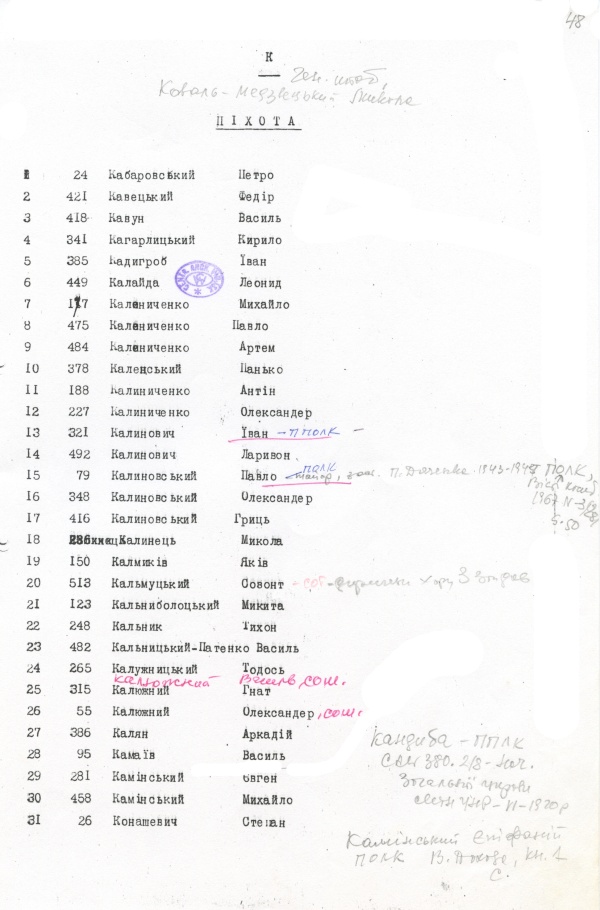 48
К
Ген-штаб,
Коваль-Медзвецький Микола
ПІХОТА
1 24 Кабаровський Петро
2 421 Кавецький Федір
3 418 Кавун Василь
4 341 Кагарлицький Кирило
5 385 Кадигроб Їван
6 449 Калайда Леонид
7 177 Каленниченко Михайло
8 475 Калениченко Павло
9 484 Калениченко Артем
10 378 Каленський Панько
11 188 Калиниченко Антін
12 227 Калиниченко Олександер
13 321 Калинович Їван - ППОЛК -
14 492 Калинович Ларивон
15 79 Калиновський Павло полк П. Дяченка 1943-194 ПОЛК,
16 348 Калиновський Олександер
17 416 Калиновський Гриць
18 Калинець Микола
19 150 Калмиків Яків
20 513 Кальмуцький Совонт
21 123 Кальниболоцький Микита
22 248 Кальник Тихон
23 482 Кальницький-Патенко Василь
24 265 Калужницький Тодось
Калюжний сот.
25 315 Калюжний Гнат
26 55 Калюжний Олександер, сот.
27 386 Калян Аркадій
28 95 Камаїв Василь
29 281 Камінський Євген
30 458 Камінський Михайло
31 26 Конашевич Степан
Кандиба - ППЛК
Камінський Єпіфаній
ПОЛК
С.